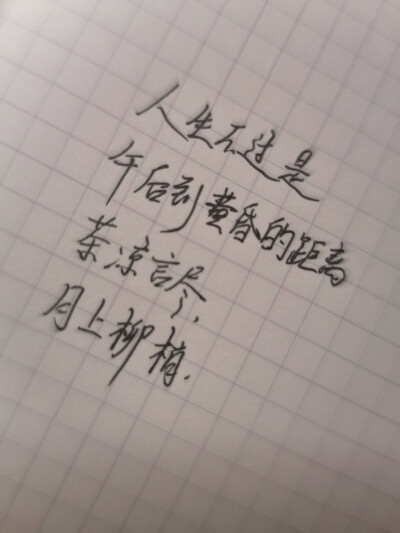 人生不过是
午后到黄昏的距离
茶凉言尽,
月上柳梢.